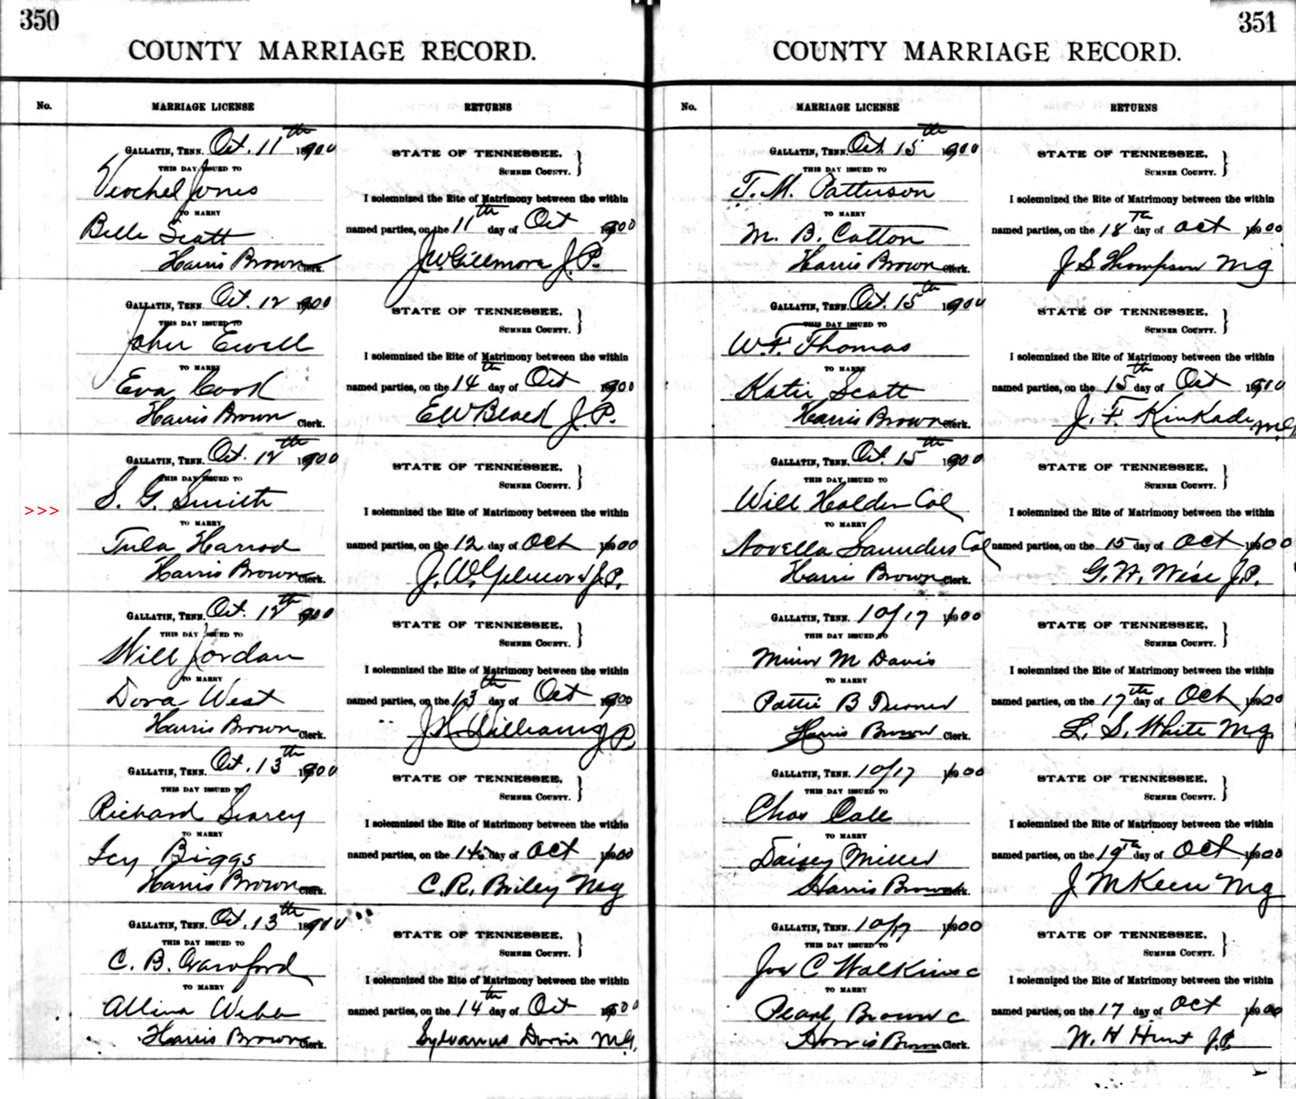 350
COUNTY MARRIAGE RECORD.
No.
MARRIAGE LICENSE
RETURNS
GALLATIN, TENN. Oct. 11th 1900
THIS DAY ISSUED TO
Jones
TO MARRY
Belle Scott
Harris Brown Clerk.
STATE OF TENNESSEE,
SUMNER COUNTY.
I solemnized the Rite of Matrimony between the within
named parties, on the 11th day of Oct 1900
J W Gillmore J.P.
GALLATIN, TENN. Oct. 12 1900
THIS DAY ISSUED TO
John Ewell
TO MARRY
Eva Cook
Harris Brown Clerk.
STATE OF TENNESSEE,
SUMNER COUNTY.
I solemnized the Rite of Matrimony between the within
named parties, on the 14th day of Oct 1900
E W J.P.
GALLATIN, TENN. Oct. 12th 1900
THIS DAY ISSUED TO
>>> S. G. Smith
TO MARRY
Tula Harrod
Harris Brown Clerk.
STATE OF TENNESSEE,
SUMNER COUNTY.
I solemnized the Rite of Matrimony between the within
named parties, on the 12 day of Oct 1900
J. W. J.P.
GALLATIN, TENN. Oct. 12th 1900
THIS DAY ISSUED TO
Will Jordan
TO MARRY
Dora West
Harris Brown Clerk.
STATE OF TENNESSEE,
SUMNER COUNTY.
I solemnized the Rite of Matrimony between the within
named parties, on the 13th day of Oct 1900
Williams J P
GALLATIN, TENN. Oct. 13th 1900
THIS DAY ISSUED TO
Richard Searcy
TO MARRY
Icy Biggs
Harris Brown Clerk.
STATE OF TENNESSEE,
SUMNER COUNTY.
I solemnized the Rite of Matrimony between the within
named parties, on the day of Oct 1900
C. R. Briley Mg
GALLATIN, TENN. Oct. 13th 1900
THIS DAY ISSUED TO
C. B. Crawford
TO MARRY
Harris Brown Clerk.
STATE OF TENNESSEE,
SUMNER COUNTY.
I solemnized the Rite of Matrimony between the within
named parties, on the 14th day of Oct 1900
Sylvanus Dorris M.G.
351
COUNTY MARRIAGE RECORD.
No.
MARRIAGE LICENSE
RETURNS
GALLATIN, TENN. Oct 15th 1900
THIS DAY ISSUED TO
T. M. Patterson
TO MARRY
M. B. Cotton
Harris Brown Clerk.
STATE OF TENNESSEE,
SUMNER COUNTY.
I solemnized the Rite of Matrimony between the within
named parties, on the 18th day of Oct 1900
J S Thompson Mg
GALLATIN, TENN. Oct. 15th 1900
THIS DAY ISSUED TO
W. F. Thomas
TO MARRY
Katie Scott
Harris Brown Clerk.
STATE OF TENNESSEE,
SUMNER COUNTY.
I solemnized the Rite of Matrimony between the within
named parties, on the 15th day of Oct 1900
J. F. Kinkade M.G.
GALLATIN, TENN. Oct. 15th 1900
THIS DAY ISSUED TO
Will Holder Col
TO MARRY
Novella Saunders Col
Harris Brown Clerk.
STATE OF TENNESSEE,
SUMNER COUNTY.
I solemnized the Rite of Matrimony between the within
named parties, on the 15 day of Oct 1900
G. W. Wise J.P.
GALLATIN, TENN. 10/17 1900
THIS DAY ISSUED TO
Minor M Davis
TO MARRY
Pattie B Turner
Harris Brown Clerk.
STATE OF TENNESSEE,
SUMNER COUNTY.
I solemnized the Rite of Matrimony between the within
named parties, on the 17th day of Oct 1900
L. S. White Mg
GALLATIN, TENN. 10/17 1900
THIS DAY ISSUED TO
Chas Cale
TO MARRY
Daisey Miller
Harris Brown Clerk.
STATE OF TENNESSEE,
SUMNER COUNTY.
I solemnized the Rite of Matrimony between the within
named parties, on the 19th day of Oct 1900
J M Keen Mg
GALLATIN, TENN. 10/17 1900
THIS DAY ISSUED TO
Joe C Watkins c
TO MARRY
Pearl Brown c
Harris Brown Clerk.
STATE OF TENNESSEE,
SUMNER COUNTY.
I solemnized the Rite of Matrimony between the within
named parties, on the 17 day of Oct 1900
W. H Hunt J.P.